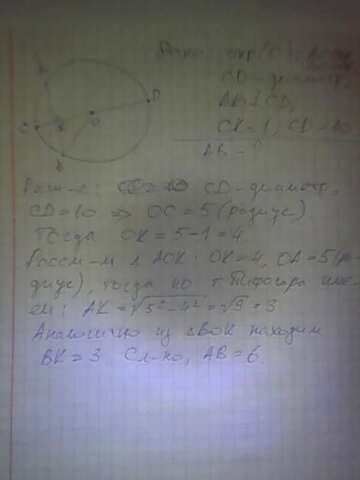 Дано: окр(O); AB-хорда
CD-диаметр,
AB ⊥ CD,
CK=1, CD=10
AB - ?
A
D
C
K
O
B
Расм-е: CD=10 CD-диаметр,
CD=10 => OC=5 (радиус)
Тогда OK=5-1=4
Рассм-м Δ AOK: OK=4, OA=5 (ра-
диус), тогда по т Пифагора име-
ем: AK=√5²-4²=√9=3
Аналогично из ΔBOK находим
BK=3. Сл-но, AB=6.